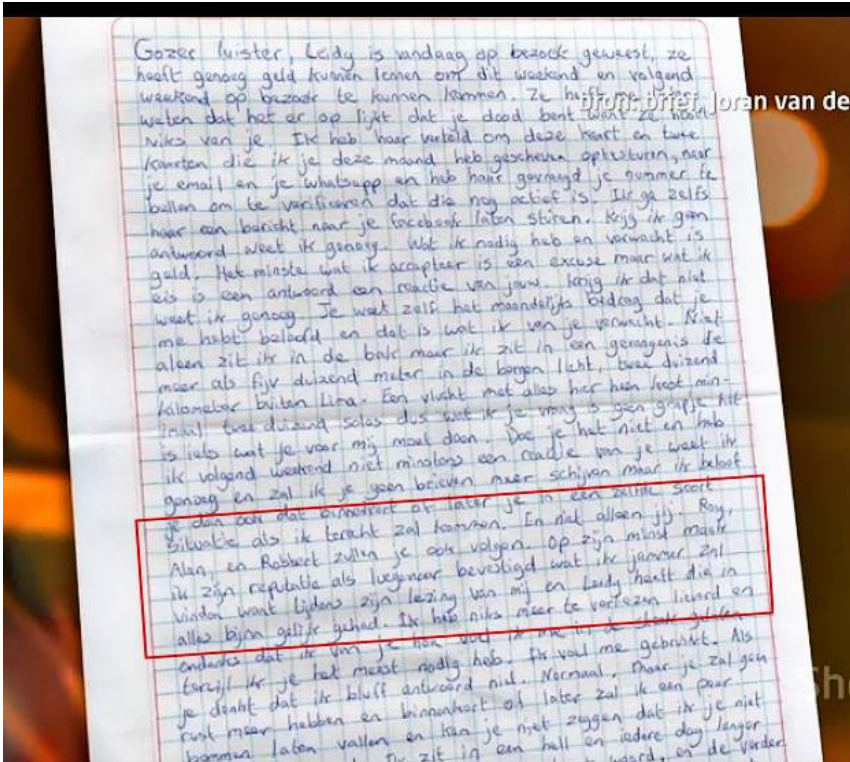 Gozer luister, Leidy is vandaag op bezoek geweest, ze
heeft genoeg geld kunnen lenen om dit weekend en volgend
weekend op bezoek te kunnen kommen. Ze heeft me laten
weten dat het er op lijkt dat je dood bent want ze hoort
bron: brief Joran van de
niks van je. Ik heb haar verteld om deze kaart en twee
kaarten die ik je deze maand heb geschreven optesturen, naar
je email en je whatsapp en heb haar gevraagd je nummer te
bellen om te verifieren dat die nog actief is. Ik ga zelfs
haar een bericht naar je facebook laten sturen. Krijg ik geen
antwoord weet ik genoeg. Wat ik nodig heb en verwacht is
geld. Het minste wat ik accepteer is een excuse maar wat ik
eis is een antwoord een reactie van jouw. Krijg ik dat niet
weet ik genoeg. Je weet zelf het maandelijks bedrag dat je
me hebt beloofd en dat is wat ik van je verwacht. Niet
aleen zit ik in de bak maar ik zit in een gevangenis die
meer als fijv duizend meter in de bergen licht, twee duizend
kilometer buiten Lima. Een vlucht met alles hier heen kost min-
imaal twee duizend soles dus wat ik je vraag is geen grapje het
is iets wat je voor mij moet doen. Doe je het niet en heb
ik volgend weekend niet minstens een reactie van je weet ik
genoeg en zal ik je geen brieven meer schijven maar ik beloof
je dan ook dat binnekort of later je in een zelfde soort
situatie als ik terecht zal kommen. En niet alleen jij. Roy,
Alan, en Robbert zullen je ook volgen. Op zijn minst maak
ik zijn reputatie als luegenaar bevestigd wat ik jammer zal
vinden want tijdens zijn lezing van mij en Leidy heeft die in
alles bijna gelijk gehad. Ik heb niks meer te verliezen lieverd en
ondanks dat ik van je hou voel ik me in de steek gelaten
terwijl ik je het meest nodig heb. Ik voel me gebruikt. Als
je denkt dat ik bluff antwoord niet. Normaal. Maar je zal geen
rust meer hebben en binnenkort of later zal ik een paar
bommen laten vallen en kan je niet zeggen dat ik je niet
Ik zit in een hell en iedere dag langer
de verder
Sh